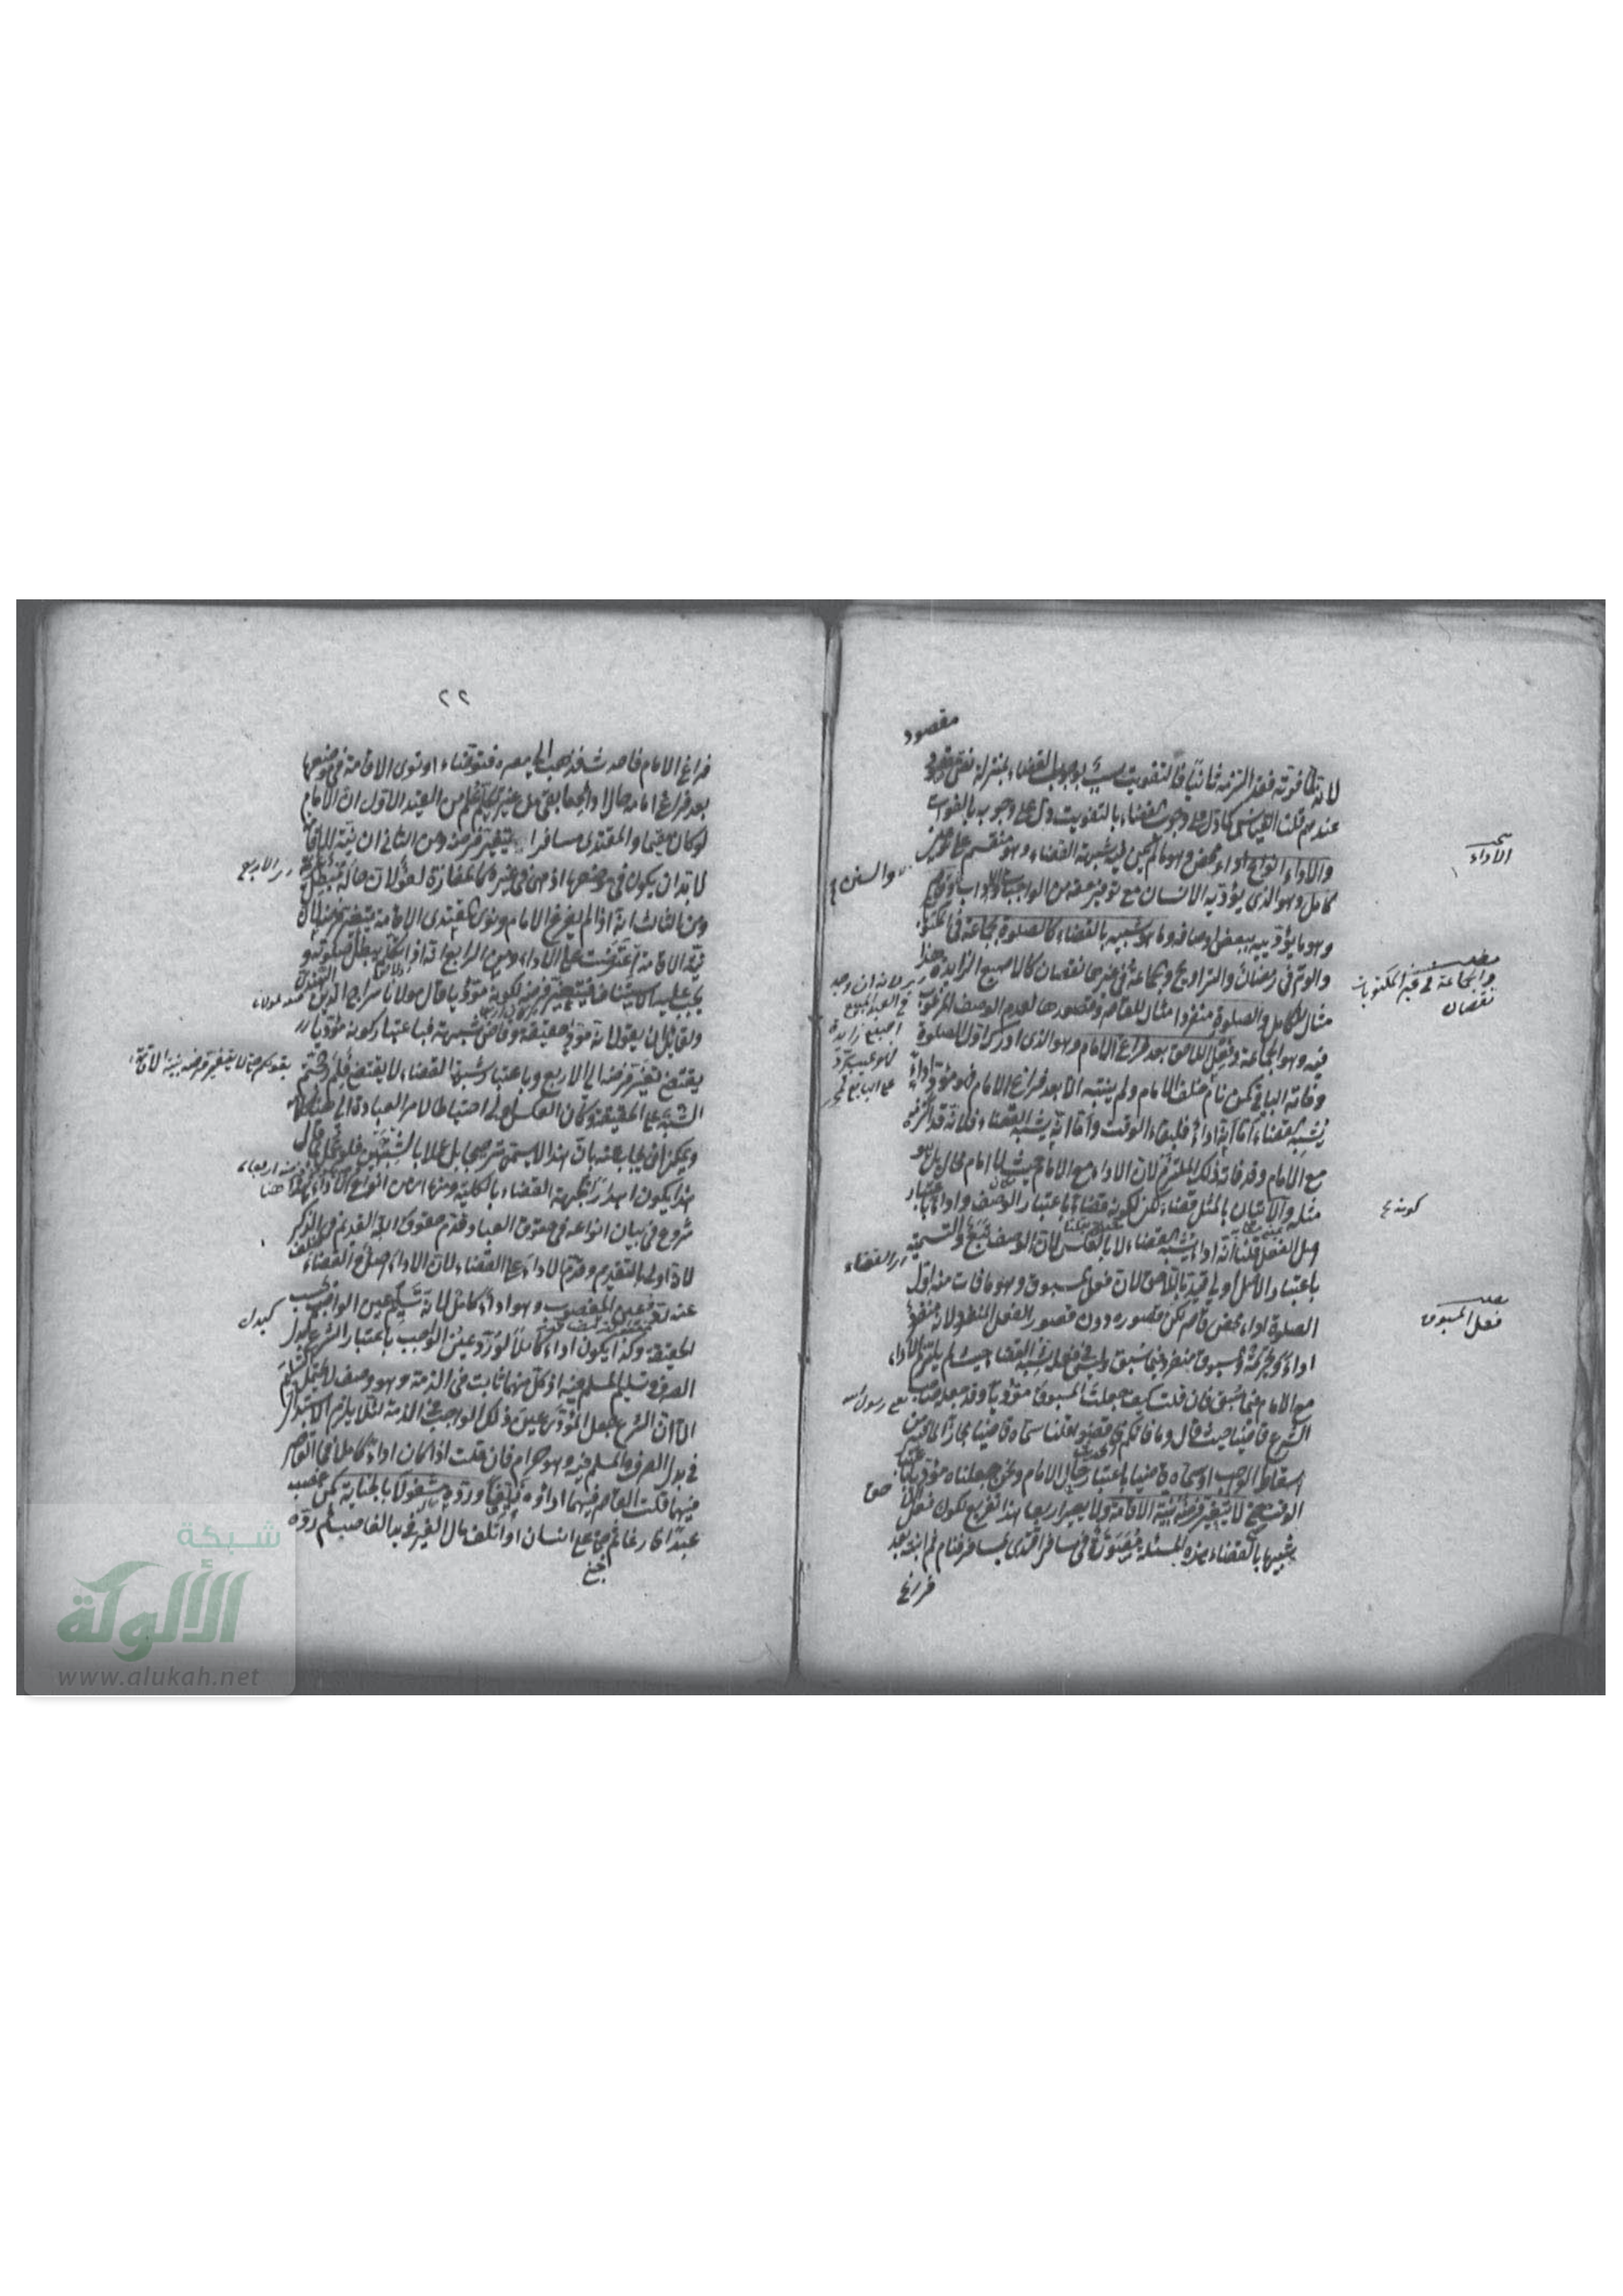 مقصود
لانه لما فوته فقد التزمه ثانيا فالتفويت سبب لوجوب القضاء بمنزلة نص مقصود
عندهم قلت القياس كما دل على وجوب القضاء بالتفويت دل على وجوب بالفوات
والاداء انواع اداء محض وهو ما لم يكن فيه شبهة القضاء وهو منقسم على
كامل وهو الذي يؤديه الانسان مع توفير حقه من الواجبات والاداب وقاصر
وهو ما يؤديه ببعض اوصافه وما هو شبيه بالقضاء كالصلوة بجماعة في المكتوبة
والوتر في رمضان والتراويح والجماعة في غيرها نقصان كالاصبع الزايدة هذا
مثال للكامل والصلوة منفردا مثال للقاصر وقصورها لعدم الوصف المرغوب
فيه وهو الجماعة وفعل اللاحق بعد فراغ الامام وهو الذي ادرك اول الصلوة
وفاته الباقي كمن نام خلف الامام ولم ينتبه الا بعد فراغ الامام فهو مؤد اداء
يشبه القضاء اما انه اداء فلبقاء الوقت واما انه يشبه القضاء فلانه قد التزمه
مع الامام وقد فات ذلك الملتزم لان الاداء مع الامام حيث لا امام محال بل هو
مثله والاتيان بالمثل قضاء لكن لكونه قضاء باعتبار الوصف واداء باعتبار
اصل الفعل قلنا انه اداء يشبه القضاء لا بالعكس لان الوصف تبع والتسمية
باعتبار الاصل اولى قيد باللاحق لان فعل المسبوق وهو ما فات منه اول
الصلوة اداء محض قاصر لكن قصوره دون قصور الفعل المنفرد لانه منفرد
اداء وتحريمة والمسبوق منفرد فيما سبق وليس في فعله شبه القضاء حيث لم يلتزم الاداء
مع الامام فيما سبق فان قلت كيف جعلت المسبوق مؤديا وقد جعله صاحب
الشرع قاضيا حيث قال وما فاتكم فاقضوا قلنا سماه قاضيا مجازا لما فيه من
اسقاط الواجب او سماه قاضيا باعتبار حال الامام ونحن جعلناه مؤديا
الوقت حتى لا يتغير فرضه بنية الاقامة ولا يصير اربعا هذا تفريع لكون فعل
شبيها بالقضاء هذه المسئلة متصورة في مسافر اقتدى بمسافر فنام ثم انتبه بعد
فراغ
الاداء
والجماعة في غير المكتوبات
نقصان
كونه
فعل المسبوق
والسنن
لانه ان وجد
في العبد المبيع
اصبع زايدة
القضاء
رسول الله
٢٢
فراغ الامام فاحدث فذهب الى مصره فتوضأ او نوى الاقامة في موضعها
بعد فراغ امامه حالا والجماعة غير
لو كان مقيما والمقتدي مسافرا يتغير فرضه ومن الثاني ان نية الاقامة
لا بد ان يكون في موضعها اذ هي في غيره كالمفازة لغو لان حاله مبطل
ومن الثالث انه اذا لم يفرغ الامام ونوى المقتدي الاقامة يتغير فرضه لان
نية الاقامة اعترضت على الاداء ومن الرابع انه اذا تكلم يبطل صلوته و
يجب عليه الاستيناف فيتغير فرضه لكونه مؤديا قال مولانا سراج الدين الهندي
ولقائل ان يقول انه مؤد حقيقة وقاض شبهة فباعتبار كونه مؤديا
يقتضي تغير فرضه الى الاربع وباعتبار شبهة القضاء لا يقتضي فلم رجحتم
الشبه على الحقيقة وكان العكس اولى احتياطا لامر العبادة الى هنا كلامه
ويمكن ان يجاب عنه بان هذا لا يسمى ترجيحا بل عملا بالشبهين فلو
هذا يكون اهدارا لجهة القضاء بالكلية ومنها اي من انواع الاداء هنا
شروع في بيان انواعه في حقوق العباد وقدم حقوق الله القديم في الذكر
لانه اولى بالتقديم وقدم الاداء على القضاء لان الاداء اصل والقضاء خلف
عنه رد عين المغصوب وهو اداء كامل لانه تسليم عين الواجب بحسب
الحقيقة وكذا يكون اداء كاملا لو رد عين الواجب باعتبار الشرع كبدل
الصرف وتسليم المسلم فيه اذ كل منهما ثابت في الذمة وهو وصف لا يحتمل التسليم
الا ان الشرع جعل المؤدى عين ذلك الواجب في الذمة لئلا يلزم الاستبدال
في بدل الصرف والمسلم فيه وهو حرام فان قلت اذا كان اداء كاملا فما القاصر
فيهما قلت القاصر فيهما اداؤه زيوفا ورده مشغولا بالجناية كمن غصب
عبدا فارغا ثم جنى على انسان او اتلف مال الغير في يد الغاصب ثم رده
الاربع
كبدل
شبكة
الألوكة
www.alukah.net